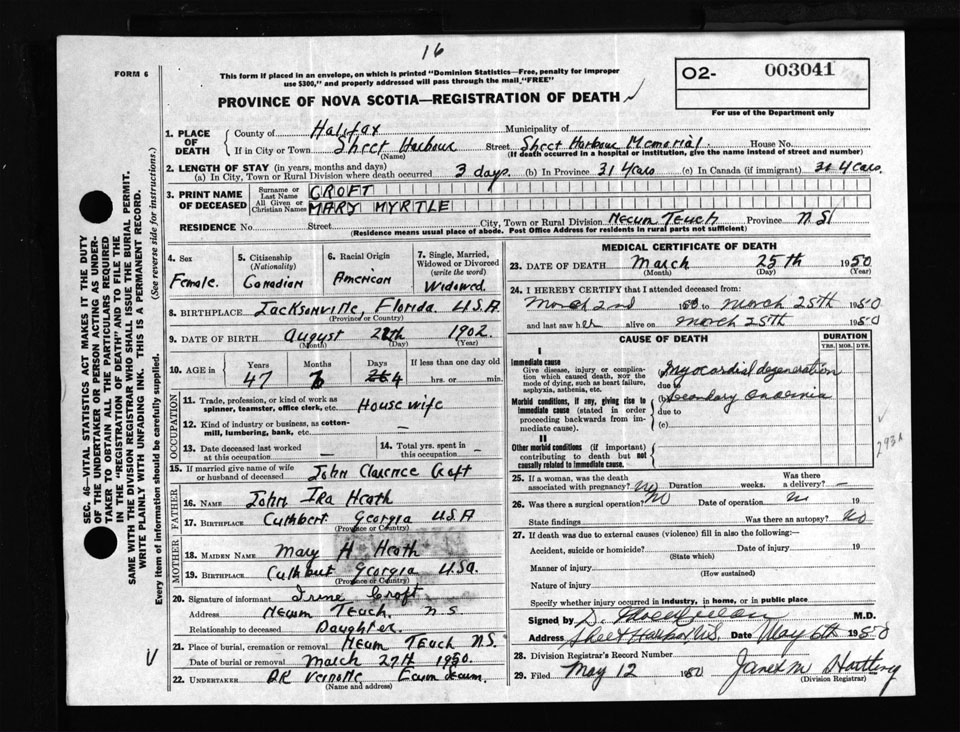 16
FORM 6
This form if placed in an envelope, on which is printed "Dominion Statistics—Free, penalty for improper
use $300," and properly addressed will pass through the mail "FREE"
PROVINCE OF NOVA SCOTIA—REGISTRATION OF DEATH
O2- 003041
For use of the Department only
1. PLACE OF DEATH
County of Halifax Municipality of
If in City or Town Sheet Harbour Street Sheet Harbour Memorial House No.
(Name) (If death occurred in a hospital or institution, give the name instead of street and number)
2. LENGTH OF STAY (in years, months and days)
(a) In City, Town or Rural Division where death occurred 3 days. (b) In Province 31 Years (c) In Canada (if immigrant) 31 Years.
3. PRINT NAME OF DECEASED
Surname or Last Name CROFT
All Given or Christian Names MARY MYRTLE
RESIDENCE No. Street City, Town or Rural Division Necum Teuch Province N.S.
(Residence means usual place of abode. Post Office Address for residents in rural parts not sufficient)
4. Sex Female.
5. Citizenship (Nationality) Canadian
6. Racial Origin American
7. Single, Married, Widowed or Divorced (write the word) Widowed.
8. BIRTHPLACE Jacksonville, Florida. U.S.A
(Province or Country)
9. DATE OF BIRTH August 1902.
(Month) (Day) (Year)
10. AGE in Years Months Days If less than one day old
47 4 hrs. or min.
OCCUPATION
11. Trade, profession, or kind of work as spinner, teamster, office clerk, etc. Housewife
12. Kind of industry or business, as cotton-mill, lumbering, bank, etc. —
13. Date deceased last worked at this occupation —
14. Total yrs. spent in this occupation —
15. If married give name of wife or husband of deceased John Clarence Croft
FATHER
16. NAME John Ira Heath
17. BIRTHPLACE Cuthbert Georgia U.S.A
(Province or Country)
MOTHER
18. MAIDEN NAME Mary H Heath
19. BIRTHPLACE Cuthbert Georgia U.S.A.
(Province or Country)
20. Signature of informant Irene Croft
Address Necum Teuch, N.S.
Relationship to deceased Daughter.
21. Place of burial, cremation or removal Necum Teuch N.S.
Date of burial or removal March 27th 1950.
22. UNDERTAKER Ecum Secum.
(Name and address)
MEDICAL CERTIFICATE OF DEATH
23. DATE OF DEATH March 25th 1950
(Month) (Day) (Year)
24. I HEREBY CERTIFY that I attended deceased from:
March 2nd 1950 to March 25th 1950
and last saw her alive on March 25th 1950
CAUSE OF DEATH
DURATION
YRS. MOS. DYS.
I
Immediate cause
Give disease, injury or complication which caused death, not the mode of dying, such as heart failure, asphyxia, asthenia, etc.
Myocardial degeneration
due to
Morbid conditions, if any, giving rise to immediate cause (stated in order proceeding backwards from immediate cause).
(b) Secondary Anaemia
due to
(c)
II
Other morbid conditions (if important) contributing to death but not causally related to immediate cause.
293A
25. If a woman, was the death associated with pregnancy? No Duration weeks. Was there a delivery? —
26. Was there a surgical operation? No Date of operation 19
State findings Was there an autopsy? No
27. If death was due to external causes (violence) fill in also the following:—
Accident, suicide or homicide? Date of injury 19
(State which)
Manner of injury
(How sustained)
Nature of injury
Specify whether injury occurred in industry, in home, or in public place
Signed by D. M.D.
Address Sheet Harbor N.S. Date May 6th 1950
28. Division Registrar's Record Number
29. Filed May 12 1950 Janet M Hartling
(Division Registrar)
SEC. 46—VITAL STATISTICS ACT MAKES IT THE DUTY
OF THE UNDERTAKER OR PERSON ACTING AS UNDER-
TAKER TO OBTAIN ALL THE PARTICULARS REQUIRED
IN THE "REGISTRATION OF DEATH" AND TO FILE THE
SAME WITH THE DIVISION REGISTRAR WHO SHALL ISSUE THE BURIAL PERMIT.
WRITE PLAINLY WITH UNFADING INK. THIS IS A PERMANENT RECORD.
Every item of information should be carefully supplied. (See reverse side for instructions.)